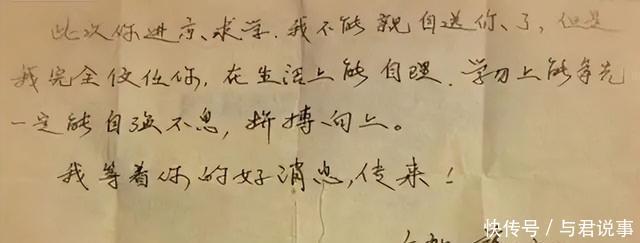 此次你进京求学.我不能亲自送你了,但是
我完全信任你,在生活上能自理.学习上能争先
一定能自强不息,拼搏向上。
我等着你的好消息,传来!
快传号/与君说事